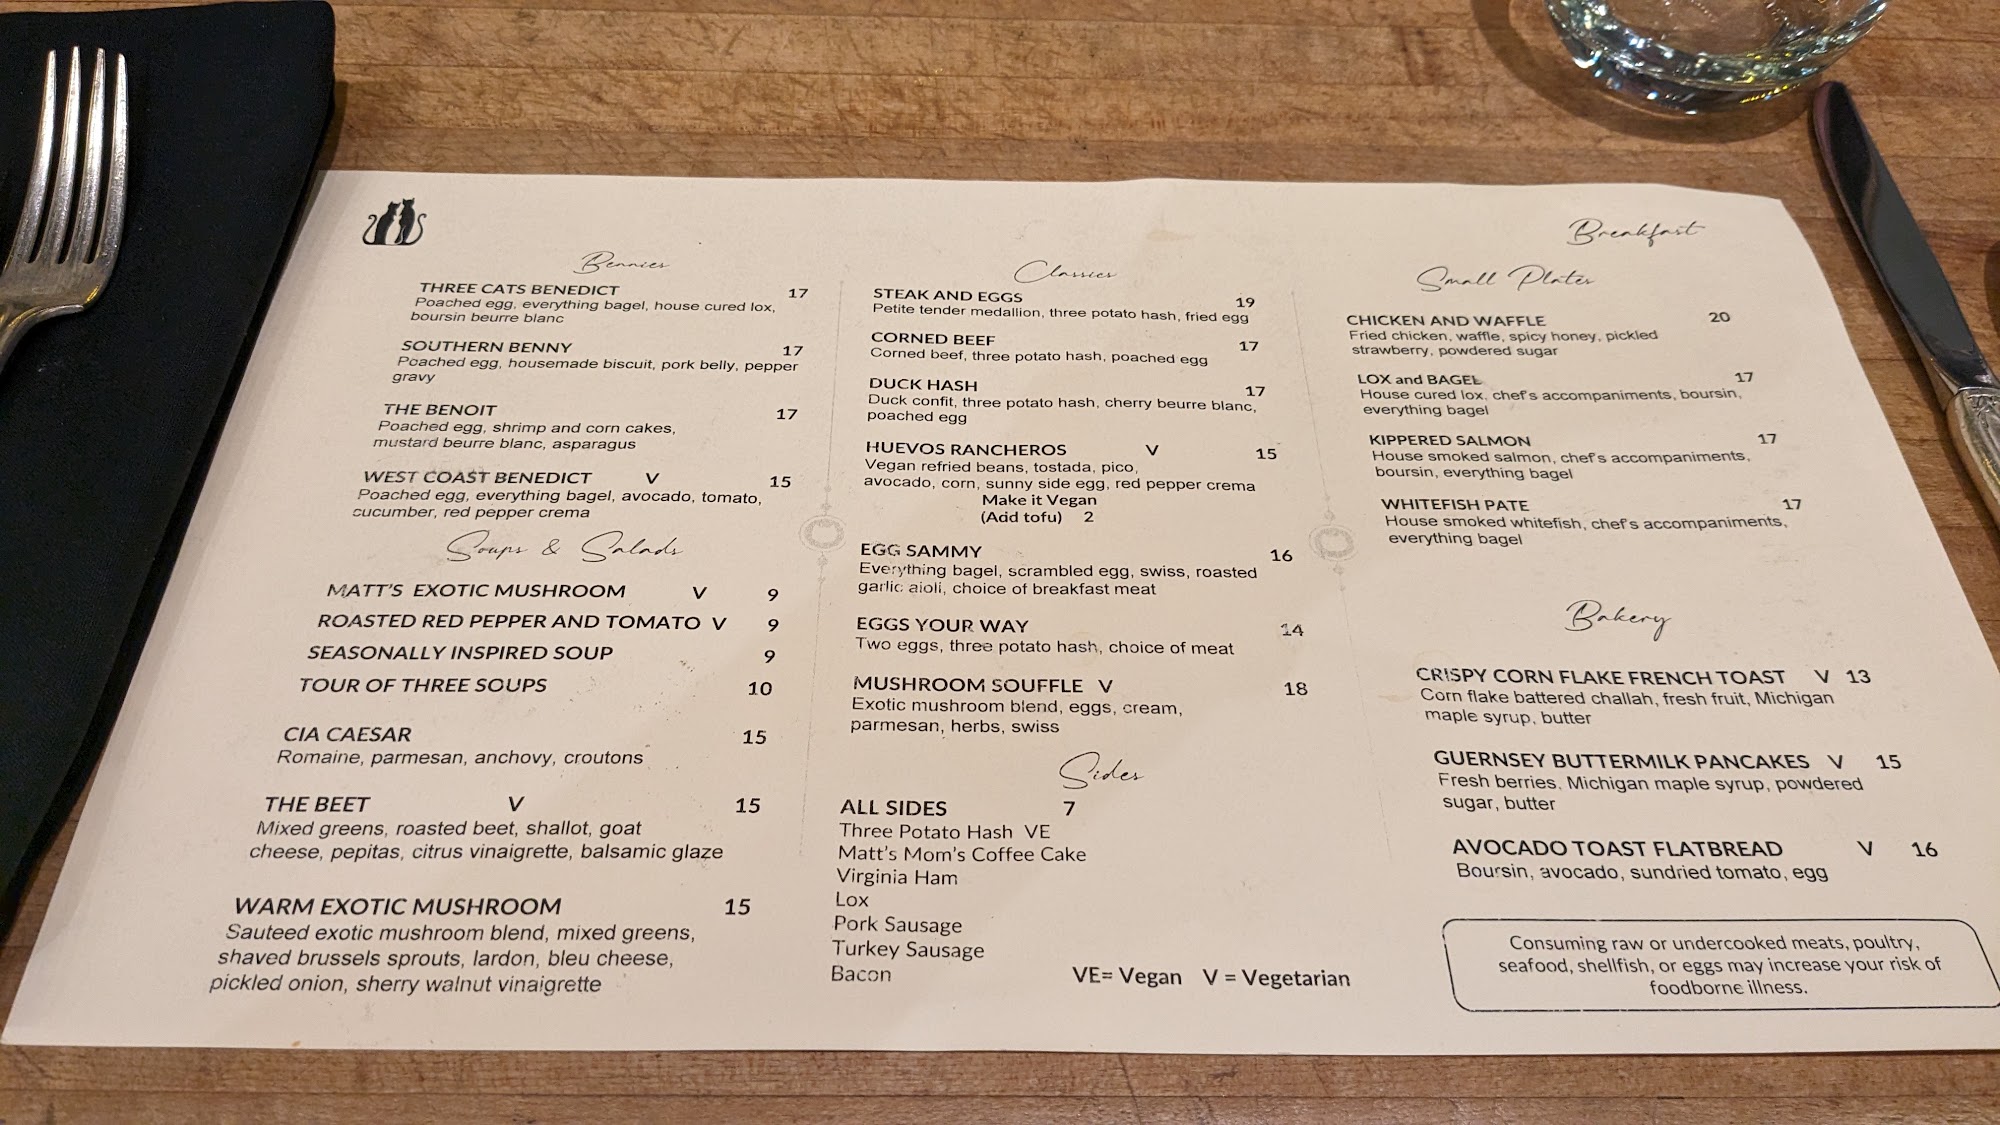 Breakfast
Bennies
THREE CATS BENEDICT 17
Poached egg, everything bagel, house cured lox,
boursin beurre blanc
SOUTHERN BENNY 17
Poached egg, housemade biscuit, pork belly, pepper
gravy
THE BENOIT 17
Poached egg, shrimp and corn cakes,
mustard beurre blanc, asparagus
WEST COAST BENEDICT V 15
Poached egg, everything bagel, avocado, tomato,
cucumber, red pepper crema
Soups & Salads
MATT'S EXOTIC MUSHROOM V 9
ROASTED RED PEPPER AND TOMATO V 9
SEASONALLY INSPIRED SOUP 9
TOUR OF THREE SOUPS 10
CIA CAESAR 15
Romaine, parmesan, anchovy, croutons
THE BEET V 15
Mixed greens, roasted beet, shallot, goat
cheese, pepitas, citrus vinaigrette, balsamic glaze
WARM EXOTIC MUSHROOM 15
Sauteed exotic mushroom blend, mixed greens,
shaved brussels sprouts, lardon, bleu cheese,
pickled onion, sherry walnut vinaigrette
Classics
STEAK AND EGGS 19
Petite tender medallion, three potato hash, fried egg
CORNED BEEF 17
Corned beef, three potato hash, poached egg
DUCK HASH 17
Duck confit, three potato hash, cherry beurre blanc,
poached egg
HUEVOS RANCHEROS V 15
Vegan refried beans, tostada, pico,
avocado, corn, sunny side egg, red pepper crema
Make it Vegan
(Add tofu) 2
EGG SAMMY 16
Everything bagel, scrambled egg, swiss, roasted
garlic aioli, choice of breakfast meat
EGGS YOUR WAY 14
Two eggs, three potato hash, choice of meat
MUSHROOM SOUFFLE V 18
Exotic mushroom blend, eggs, cream,
parmesan, herbs, swiss
Sides
ALL SIDES 7
Three Potato Hash VE
Matt's Mom's Coffee Cake
Virginia Ham
Lox
Pork Sausage
Turkey Sausage
Bacon
VE= Vegan V = Vegetarian
Small Plates
CHICKEN AND WAFFLE 20
Fried chicken, waffle, spicy honey, pickled
strawberry, powdered sugar
LOX and BAGEL 17
House cured lox, chef's accompaniments, boursin,
everything bagel
KIPPERED SALMON 17
House smoked salmon, chef's accompaniments,
boursin, everything bagel
WHITEFISH PATE 17
House smoked whitefish, chef's accompaniments,
everything bagel
Bakery
CRISPY CORN FLAKE FRENCH TOAST V 13
Corn flake battered challah, fresh fruit, Michigan
maple syrup, butter
GUERNSEY BUTTERMILK PANCAKES V 15
Fresh berries, Michigan maple syrup, powdered
sugar, butter
AVOCADO TOAST FLATBREAD V 16
Boursin, avocado, sundried tomato, egg
Consuming raw or undercooked meats, poultry,
seafood, shellfish, or eggs may increase your risk of
foodborne illness.